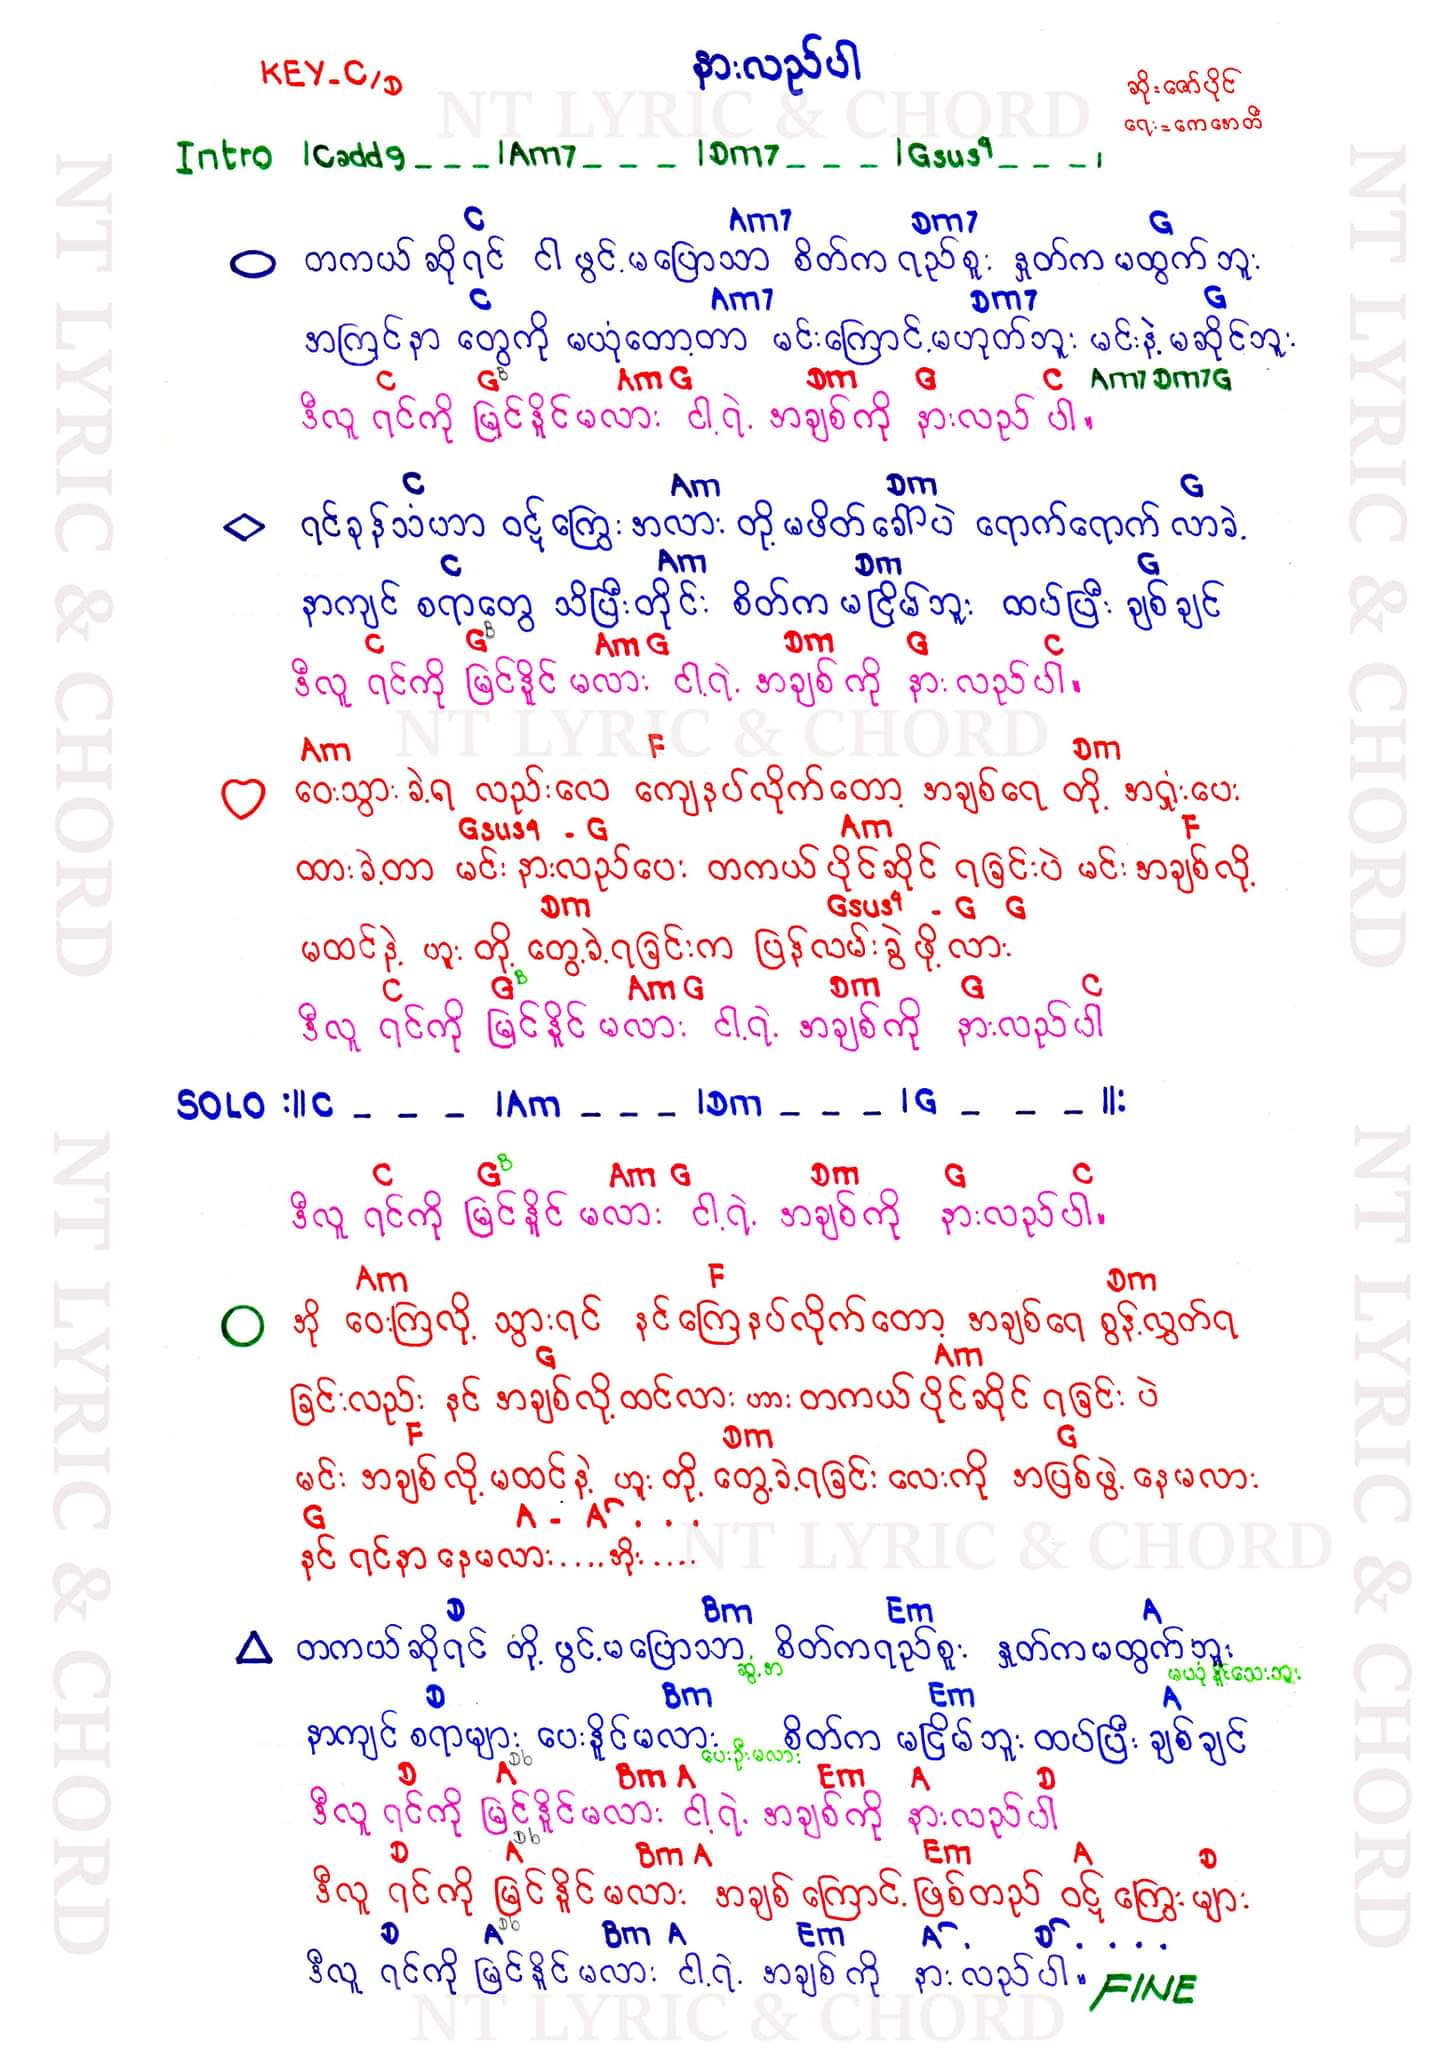 နားလည်ပါ
KEY-C/D
ဆို=ဇော်ပိုင်
ရေး=ကေဇောတီ
Intro |Cadd9_ _ _|Am7_ _ _ |Dm7_ _ _ |Gsus4_ _ _|
C Am7 Dm7 G
တကယ်ဆိုရင် ငါ ဖွင့်မပြောသာ စိတ်က ရည်စူး နှုတ်က မထွက်ဘူး
C Am7 Dm7 G
အကြင်နာ တွေကို မယုံတော့တာ မင်းကြောင့်မဟုတ်ဘူး မင်းနဲ့ မဆိုင်ဘူး
C G B Am G Dm G C Am7 Dm7 G
ဒီလူ ရင်ကို မြင်နိူင်မလား ငါ့ရဲ့ အချစ်ကို နားလည် ပါ။
C Am Dm G
ရင်ခုန်သံဟာ ဝဋ်ကြွေးအလား တို့မဖိတ်ခေါ်ပဲ ရောက်ရောက် လာခဲ့
C Am Dm G
နာကျင် စရာတွေ သိပြီးတိုင်း စိတ်က မငြိမ်ဘူး ထပ်ပြီး ချစ်ချင်
C G B Am G Dm G C
ဒီလူ ရင်ကို မြင်နိူင် မလား ငါ့ရဲ့ အချစ် ကို နားလည်ပါ။
Am F Dm
ဝေးသွားခဲ့ရ လည်းလေ ကျေနပ်လိုက်တော့ အချစ်ရေ တို့ အရှုံးပေး
Gsus4 - G Am F
ထားခဲ့တာ မင်းနားလည်ပေး တကယ် ပိုင်ဆိုင် ရခြင်းပဲ မင်း အချစ်လို့
Dm Gsus4 - G G
မထင်နဲ့ ဟူး တို့ တွေ့ခဲ့ရခြင်းက ပြန်လမ်းခွဲ ဖို့လား
C G B Am G Dm G C
ဒီလူ ရင်ကို မြင်နိူင် မလား ငါ့ရဲ့ အချစ်ကို နားလည်ပါ
SOLO :||C _ _ _ |Am _ _ _ |Dm _ _ _ |G _ _ _ ||:
C G B Am G Dm G C
ဒီလူ ရင်ကို မြင်နိူင် မလား ငါ့ရဲ့ အချစ်ကို နားလည်ပါ။
Am F Dm
အို ဝေးကြလို့ သွားရင် နင်ကြေနပ်လိုက်တော့ အချစ်ရေ စွန့်လွှတ်ရ
G Am
ခြင်းလည်း နင် အချစ်လို့ထင်လား ဟား တကယ်ပိုင်ဆိုင် ရခြင်း ပဲ
F Dm G
မင်း အချစ်လို့မထင်နဲ့ ဟူး တို့ တွေ့ခဲ့ရခြင်း လေးကို အပြစ်ဖွဲ့ နေမလား
G A - A . . .
နင် ရင်နာ နေမလား....အိုး....
D Bm Em A
တကယ်ဆိုရင် တို့ ဖွင့်မပြောသာ့ စိတ်ကရည်စူး နှုတ်ကမထွက်ဘူး
ဆွံ့အ မယုံနိူင်သေးဘူး
D Bm Em A
နာကျင် စရာများ ပေးနိူင်မလား စိတ်က မငြိမ်ဘူး ထပ်ပြီး ချစ်ချင်
ပေးဦးမလား
D A Db Bm A Em A D
ဒီလူ ရင်ကို မြင်နိူင်မလား ငါ့ရဲ့ အချစ်ကို နားလည်ပါ
D A Db Bm A Em A D
ဒီလူ ရင်ကို မြင်နိူင်မလား အချစ်ကြောင့် ဖြစ်တည် ဝဋ်ကြွေးများ
D A Db Bm A Em A . D . . . .
ဒီလူ ရင်ကို မြင်နိူင်မလား ငါ့ရဲ့ အချစ်ကို နားလည်ပါ။ FINE
NT LYRIC & CHORD
NT LYRIC & CHORD
NT LYRIC & CHORD
NT LYRIC & CHORD
NT LYRIC & CHORD
NT LYRIC & CHORD
NT LYRIC & CHORD
NT LYRIC & CHORD